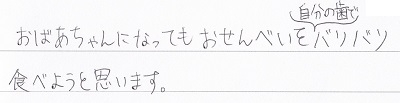 自分の歯で
おばあちゃんになっても おせんべいをバリバリ
食べようと思います。